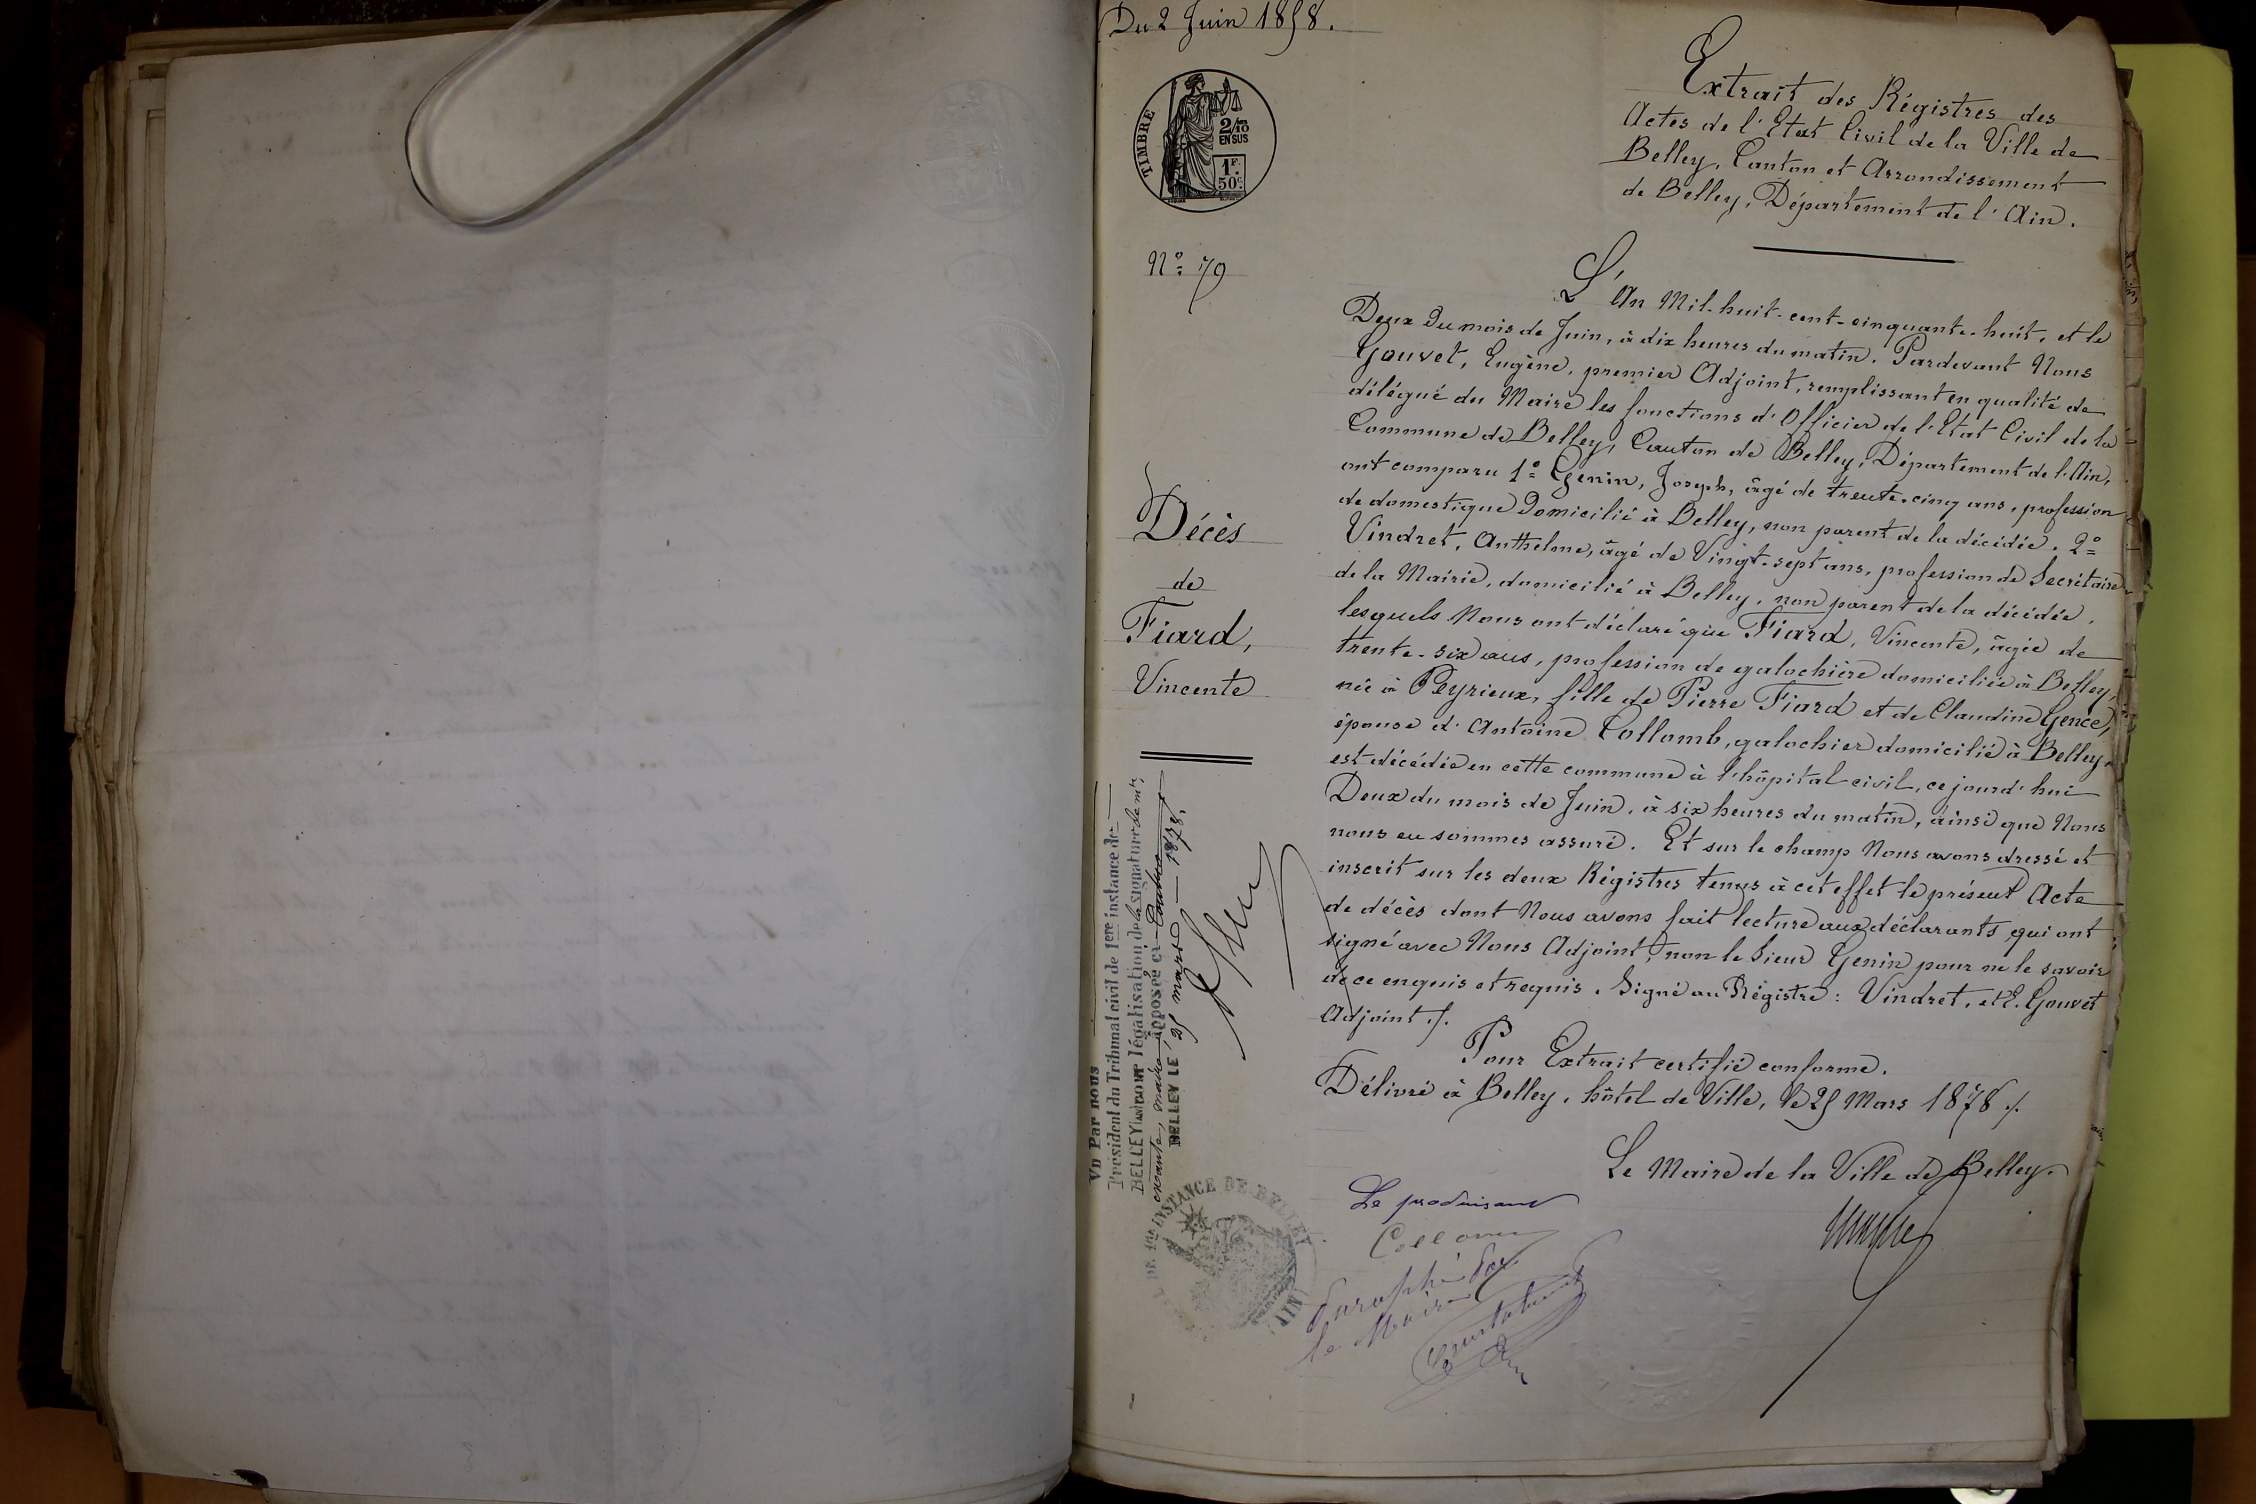 Du 2 Juin 1858.
TIMBRE
2/10
EN SUS
1F.
50c.
Nº 79
Décès
de
Fiard,
Vincente
Extrait des Régistres des
Actes de l'Etat Civil de la Ville de
Belley, Canton et Arrondissement
de Belley, Département de l'Ain.
L'An Mil-huit-cent-cinquante-huit, et le
Deux du mois de Juin, à dix heures du matin. Pardevant Nous
Gouvet, Eugène, premier Adjoint, remplissant en qualité de
délégué du Maire les fonctions d'Officier de l'Etat Civil de la
Commune de Belley, Canton de Belley, Département de l'Ain,
ont comparu 1º Genin, Joseph, âgé de trente-cinq ans, profession
de domestique domicilié à Belley, non parent de la décédée. 2º
Vindret, Anthelme, âgé de Vingt-sept ans, profession de Secrétaire
de la Mairie, domicilié à Belley, non parent de la décédée,
lesquels Nous ont déclaré que Fiard, Vincente, âgée de
trente-six ans, profession de galochière domiciliée à Belley,
née à Peyrieux, fille de Pierre Fiard et de Claudine Gence,
épouse d'Antoine Collomb, galochier domicilié à Belley,
est décédée en cette commune à l'hôpital civil, cejourd'hui
Deux du mois de Juin, à six heures du matin, ainsi que Nous
nous en sommes assuré. Et sur le champ Nous avons dressé et
inscrit sur les deux Régistres tenus à cet effet le présent Acte
de décès dont Nous avons fait lecture aux déclarants qui ont
signé avec Nous Adjoint, non le Sieur Genin pour ne le savoir
de ce enquis et requis. Signé au Régistre : Vindret, et E. Gouvet
Adjoint ./.
Pour Extrait certifié conforme.
Délivré à Belley, hôtel de Ville, le 25 Mars 1878 ./.
Le Maire de la Ville de Belley.
Vu Par nous
Président du Tribunal civil de 1ere instance de
BELLEY (Ain) pour légalisation de la signature de mr
apposée ci-contre
BELLEY LE 25 mars 1878.
DE 1ere INSTANCE DE BELLEY
AIN
Le produisant
Collomb
Paraphé par
le Maire